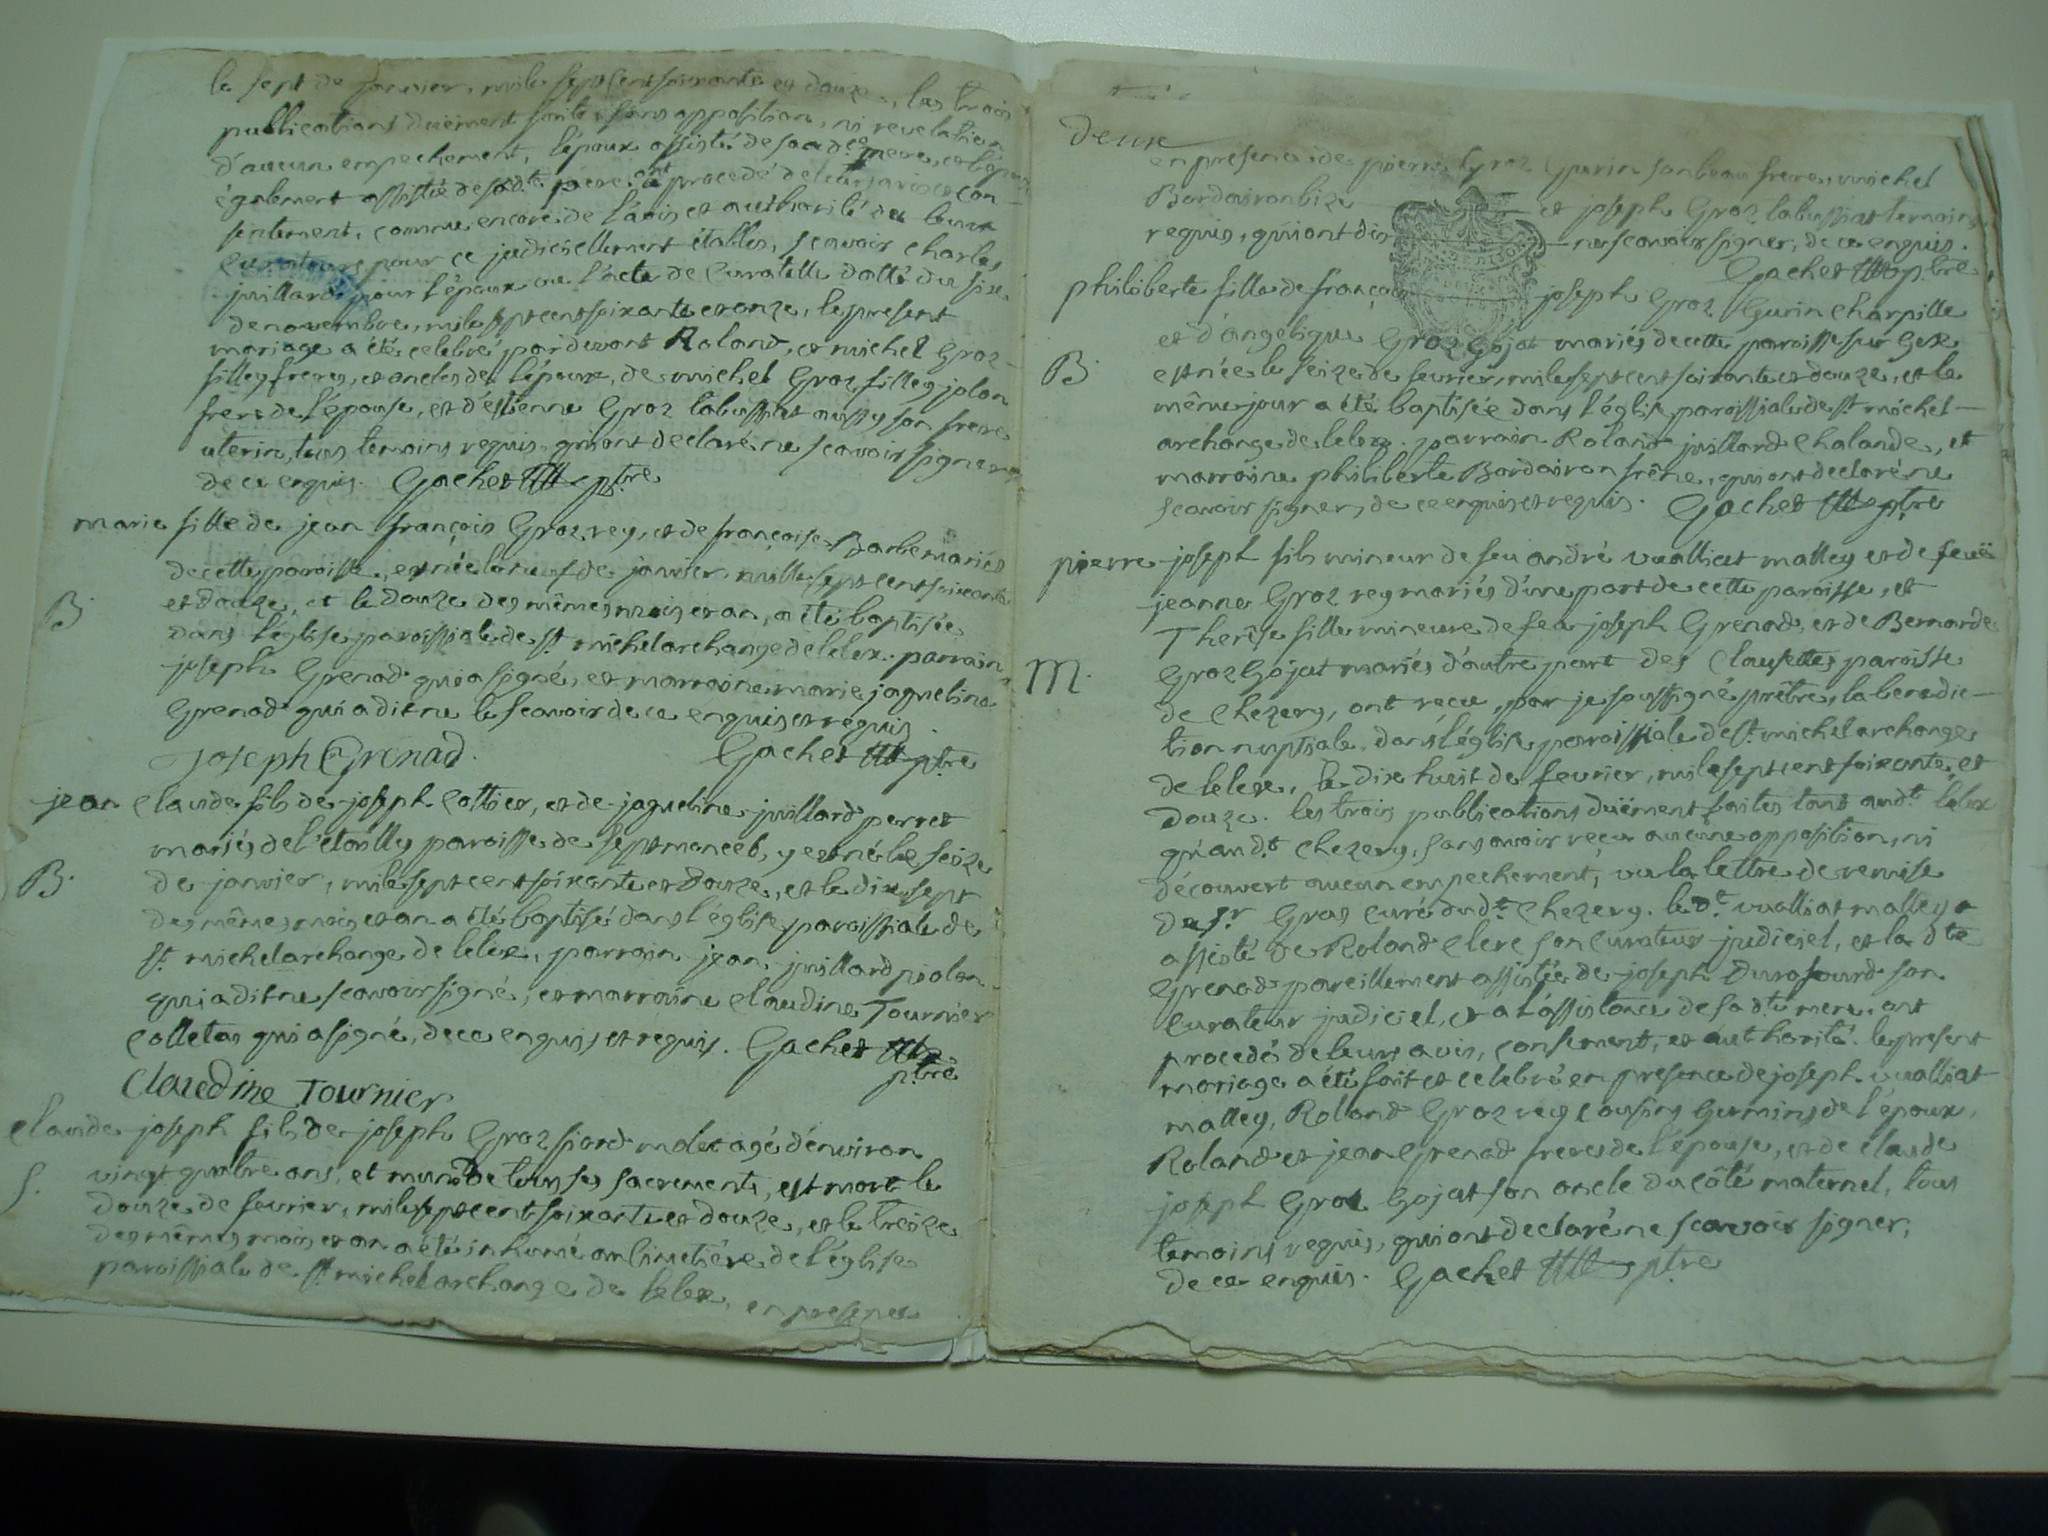 le sept de janvier, mile sept cent soixante et douze, les trois
publications düement faites sans opposition, ni revelation
d'aucun empechement, l'époux assisté de sad.e mere, et l'épouse
également assistée de sad.te mere ont procedé de leurs avis et con-
sentement, comme encore de l'avis et authorité de leurs
curateurs pour ce judiciellement établis, scavoir Charles
juillard pour l'époux vu l'acte de curatelle datté du six
de novembre, mile sept cent soixante et onze, le present
mariage a été celebré pardevant Roland, et michel Groz-
filley freres, et oncles de l'époux, de michel Groz filley jolon
frere de l'épouse, et d'estienne Groz labussiat aussy son frere
uterin, tous temoins requis, qui ont declaré ne scavoir signer
de ce enquis. Gachet ptre
marie fille de jean françois Groz rey, et de françoise Barbe mariés
de cette paroisse, est née le neuf de janvier mille sept cent soixante
et douze, et le douze des mêmes mois et an, a été baptisée
B.
dans l'église paroissiale de st. michel archange de lelex. parrain
joseph Grenad qui a signé, et marraine marie jaqueline
Grenad qui a dit ne le scavoir de ce enquis et requis
Joseph Grenad. Gachet ptre
jean Claude fils de joseph Cottier, et de jaqueline juillard perret
mariés de l'étailly paroisse de septmoncel, y est né le seize
B.
de janvier, mile sept cent soixante et douze, et le dix sept
des mêmes mois et an a été baptisé dans l'église paroissiale de
st. michel archange de lelex, parrain jean juillard piolon
qui a dit ne scavoir signé, et marraine Claudine Tournier
colletas qui a signé, de ce enquis et requis. Gachet
ptre
Claudine Tournier
Claude joseph fils de joseph Groz siard malet agé d'environ
S.
vingt quatre ans, et muni de tous ses sacrements, est mort le
douze de fevrier, mile sept cent soixante et douze, et le treize
des mêmes mois et an a été inhumé au cimetiére de l'église
paroissiale de st. michel archange de lelex, en presence
deux
en presence de pierre Groz Gurin son beau frere, michel
Bordairon bize et joseph Groz labussiat temoins
requis, qui ont dit ne scavoir signer, de ce enquis.
Gachet ptre
philiberte fille de françois joseph Groz Gurin Charpille
et d'angelique Groz Gojat mariés de cette paroisse sur Gex
B.
est née le seize de fevrier, mile sept cent soixante et douze, et le
même jour a été baptisée dans l'église paroissiale de st. michel-
archange de lelex. parrain Roland juillard Chalande, et
marraine philiberte Bordairon frêne, qui ont declaré ne
scavoir signer, de ce enquis et requis. Gachet ptre
pierre joseph fils mineur de feu andré vualliat malley et de feuë
jeanne Groz rey mariés d'une part de cette paroisse, et
Therêse fille mineure de feu joseph Grenad, et de Bernarde
M.
Groz Gojat mariés d'autre part des Clausettes paroisse
de Chezery, ont reçu par je soussigné prêtre, la benedic-
tion nuptiale dans l'église paroissiale de st. michel archange
de lelex, le dix huit de fevrier, mile sept cent soixante et
douze. les trois publications düement faites tant aud.t lelex
qu'aud.t Chezery, sans avoir reçu aucune opposition, ni
découvert aucun empechement, vu la lettre de remise
de sr. Gras curé dud.t Chezery. led.t vualliat malley
assisté de Roland Clerc son curateur judiciel, et lad.te
Grenad pareillement assistée de joseph Durafourd son
curateur judiciel, et a l'assistance de sad.te mere, ont
procedés de leurs avis, consement, et authorité. le present
mariage a été fait et celebré en presence de joseph vualliat
malley, Roland Groz rey cousins germains de l'époux,
Roland et jean Grenad freres de l'épouse, et de claude
joseph Groz Gojat son oncle du côté maternel, tous
temoins requis, qui ont declaré ne scavoir signer,
de ce enquis. Gachet ptre